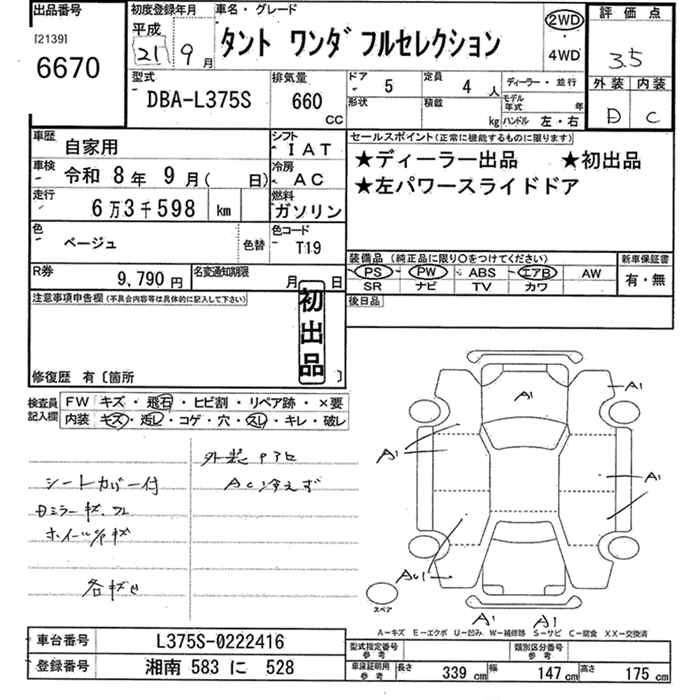 出品番号
[2139]
6670
初度登録年月
平成
21年 9月
車名・グレード
タント ワンダフルセレクション
2WD
・
4WD
評価点
3.5
外装 内装
D C
型式
DBA-L375S
排気量
660
CC
ドア 5
形状
定員 4人
積載 kg
ディーラー・並行
モデル年式 年
ハンドル 左・右
車歴 自家用
シフト IAT
車検 令和 8年 9月( 日)
冷房 AC
走行 6万3千598 km
燃料 ガソリン
色 ベージュ 色替
色コード T19
R券 9,790円
名変通知期限 月 日
セールスポイント(正常に機能するものに限ります)
★ディーラー出品 ★初出品
★左パワースライドドア
装備品 (純正品に限り○をつけてください)
PS PW ABS エアB AW
SR ナビ TV カワ
新車保証書
有・無
後日品
注意事項申告欄(不具合内容等は具体的に記入して下さい)
初出品
修復歴 有〔箇所 〕
検査員記入欄
FW キズ・飛石・ヒビ割・リペア跡・×要
内装 キズ・汚レ・コゲ・穴・スレ・キレ・破レ
シートカバー付
ホイールキャップキズ
外装
AC冷えず
A1
A1
A1
A1
A1
A1
スペア
A-キズ E-エクボ U-凹み W-補修跡 S-サビ C-腐食 XX-交換済
車台番号 L375S-0222416
登録番号 湘南 583 に 528
型式指定番号 参考
類別区分番号 参考
車庫証明用 参考
長さ 339 cm 幅 147 cm 高さ 175 cm